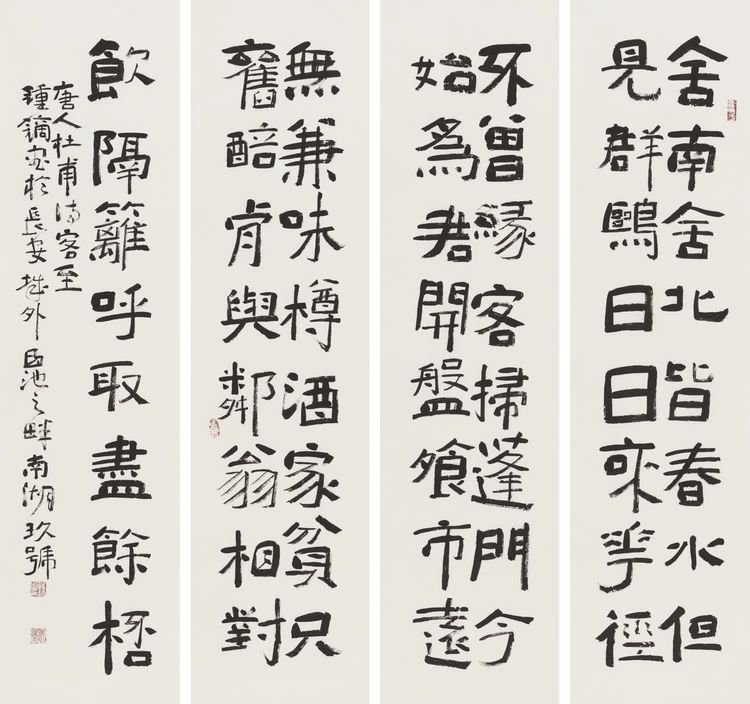 舍南舍北皆春水但
見群鷗日日來花徑
不曾緣客掃蓬門今
始爲君開盤飧市遠
無兼味樽酒家貧只
舊醅肯與鄰翁相對
飲隔籬呼取盡餘桮
唐人杜甫詩客至
書於長安城外昆池之畔南湖玖號